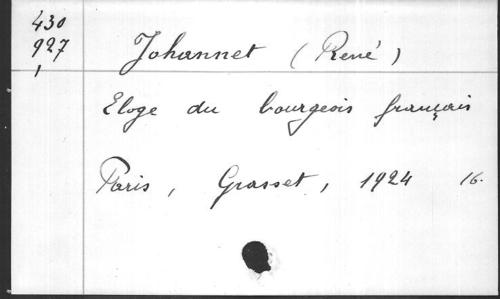 430
927
1
Johannet (René)
Eloge du bourgeois français
Paris, Grasset, 1924 16.